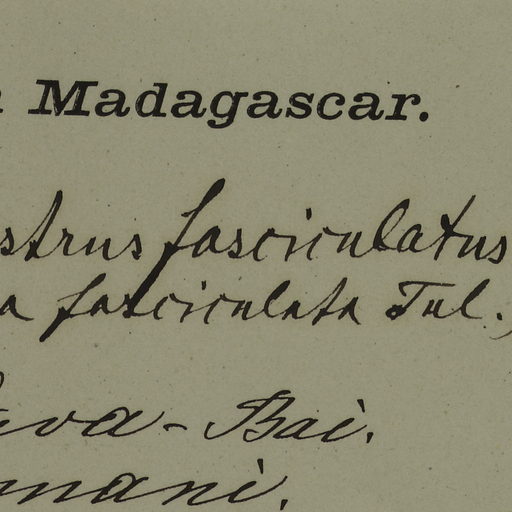 Madagascar.
strus fasciculatus
a fasciculata Tul.,
ava-Bai.
mani.